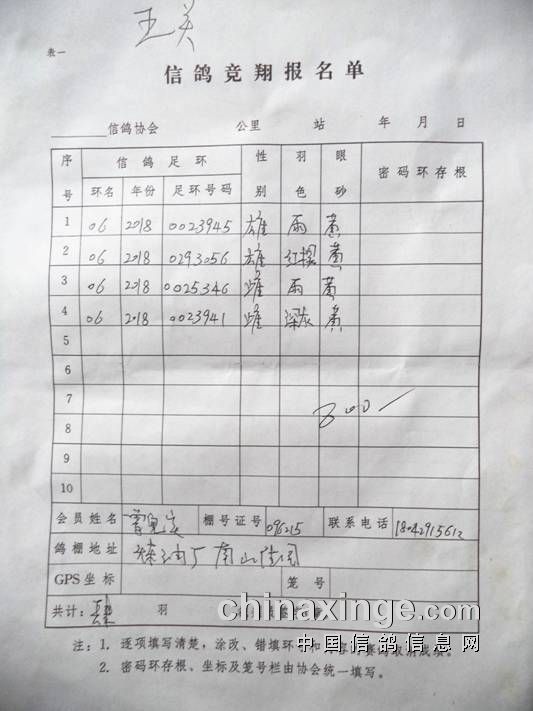 王关
表一
信鸽竞翔报名单
信鸽协会 公里 站 年 月 日
序号 信鸽足环 性别 羽色 眼砂 密码环存根
环名 年份 足环号码
1 06 2018 0023945 雄 雨 黄
2 06 2018 0293056 雄 红 黄
3 06 2018 0025346 雌 雨 黄
4 06 2018 0023941 雌 深灰 黄
5
6
7
8
9
10
会员姓名 棚号证号 096215 联系电话 18042915612
鸽棚地址 炼油厂南山佳园
GPS坐标 笼号
共计: 肆 羽
chinaxinge.com
中国信鸽信息网
注:1. 逐项填写清楚,涂改、错填环号和
2. 密码环存根、坐标及笼号栏由协会统一填写。